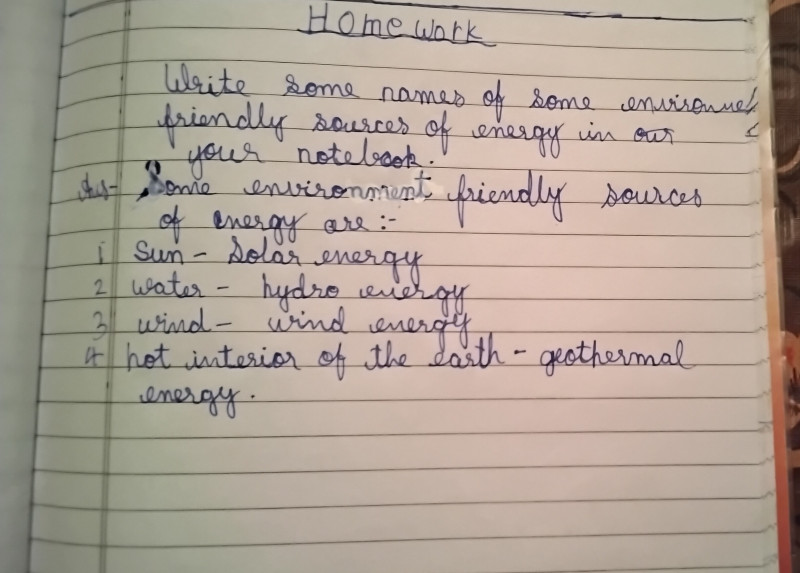 Home work
Write some names of some environmet
friendly sources of energy in our
your notebook.
Ans- Some environment friendly sources
of energy are :-
1 Sun - Solar energy
2 water - hydro energy
3 wind - wind energy
4 hot interior of the earth - geothermal
energy.